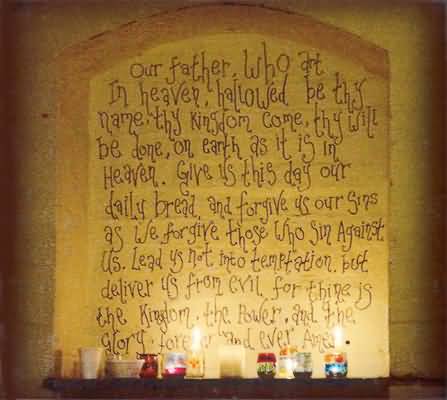 Our father, who art
In heaven, hallowed be thy
name. thy Kingdom come, thy will
be done, on earth as it is in
Heaven. Give us this day our
daily bread, and forgive us our Sins
as We forgive those Who Sin Against
Us. Lead us not into temptation, but
deliver us from Evil. for thine is
the Kingdom, the Power, and the
Glory, forever and ever Amen.